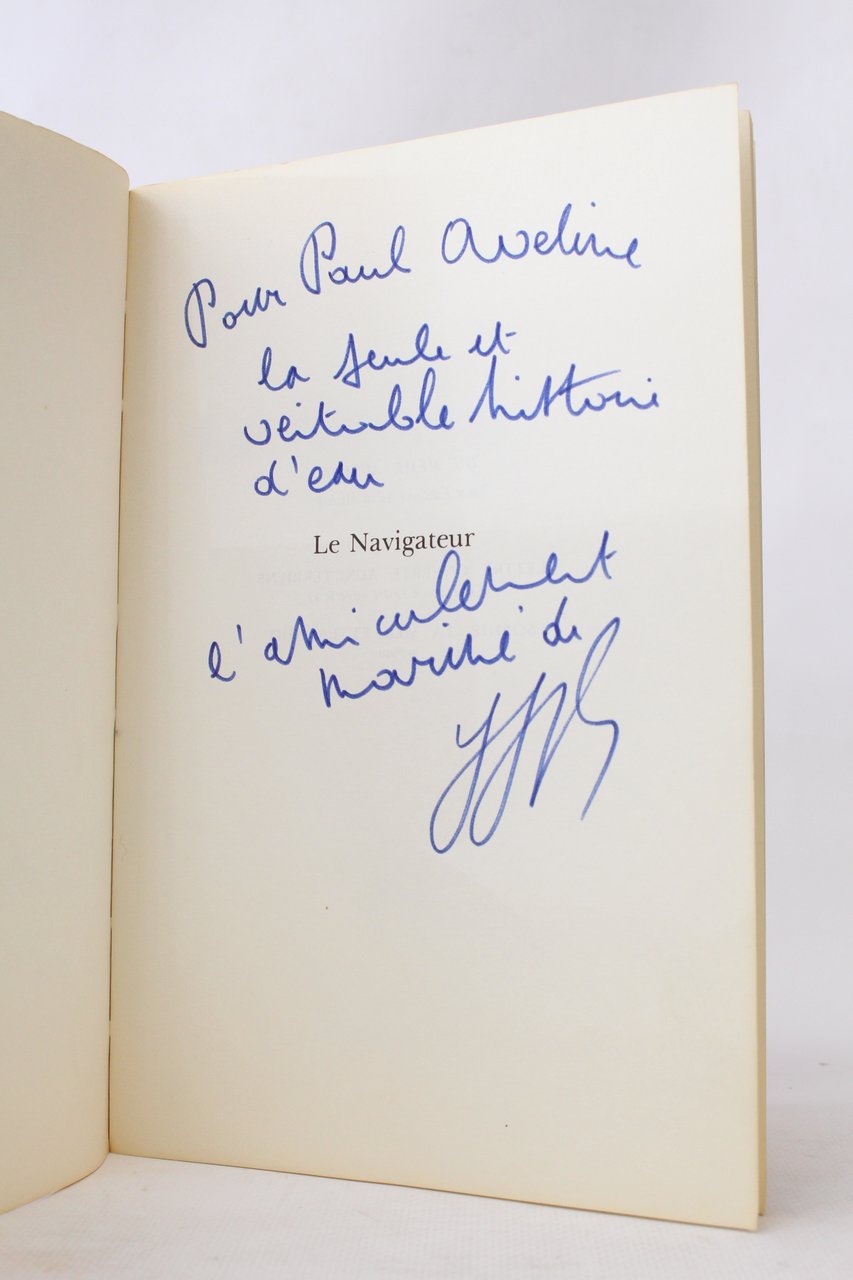 Pour Paul Aveline
la seule et
veritable histoire
d'eau
Le Navigateur
l'amicalement
de